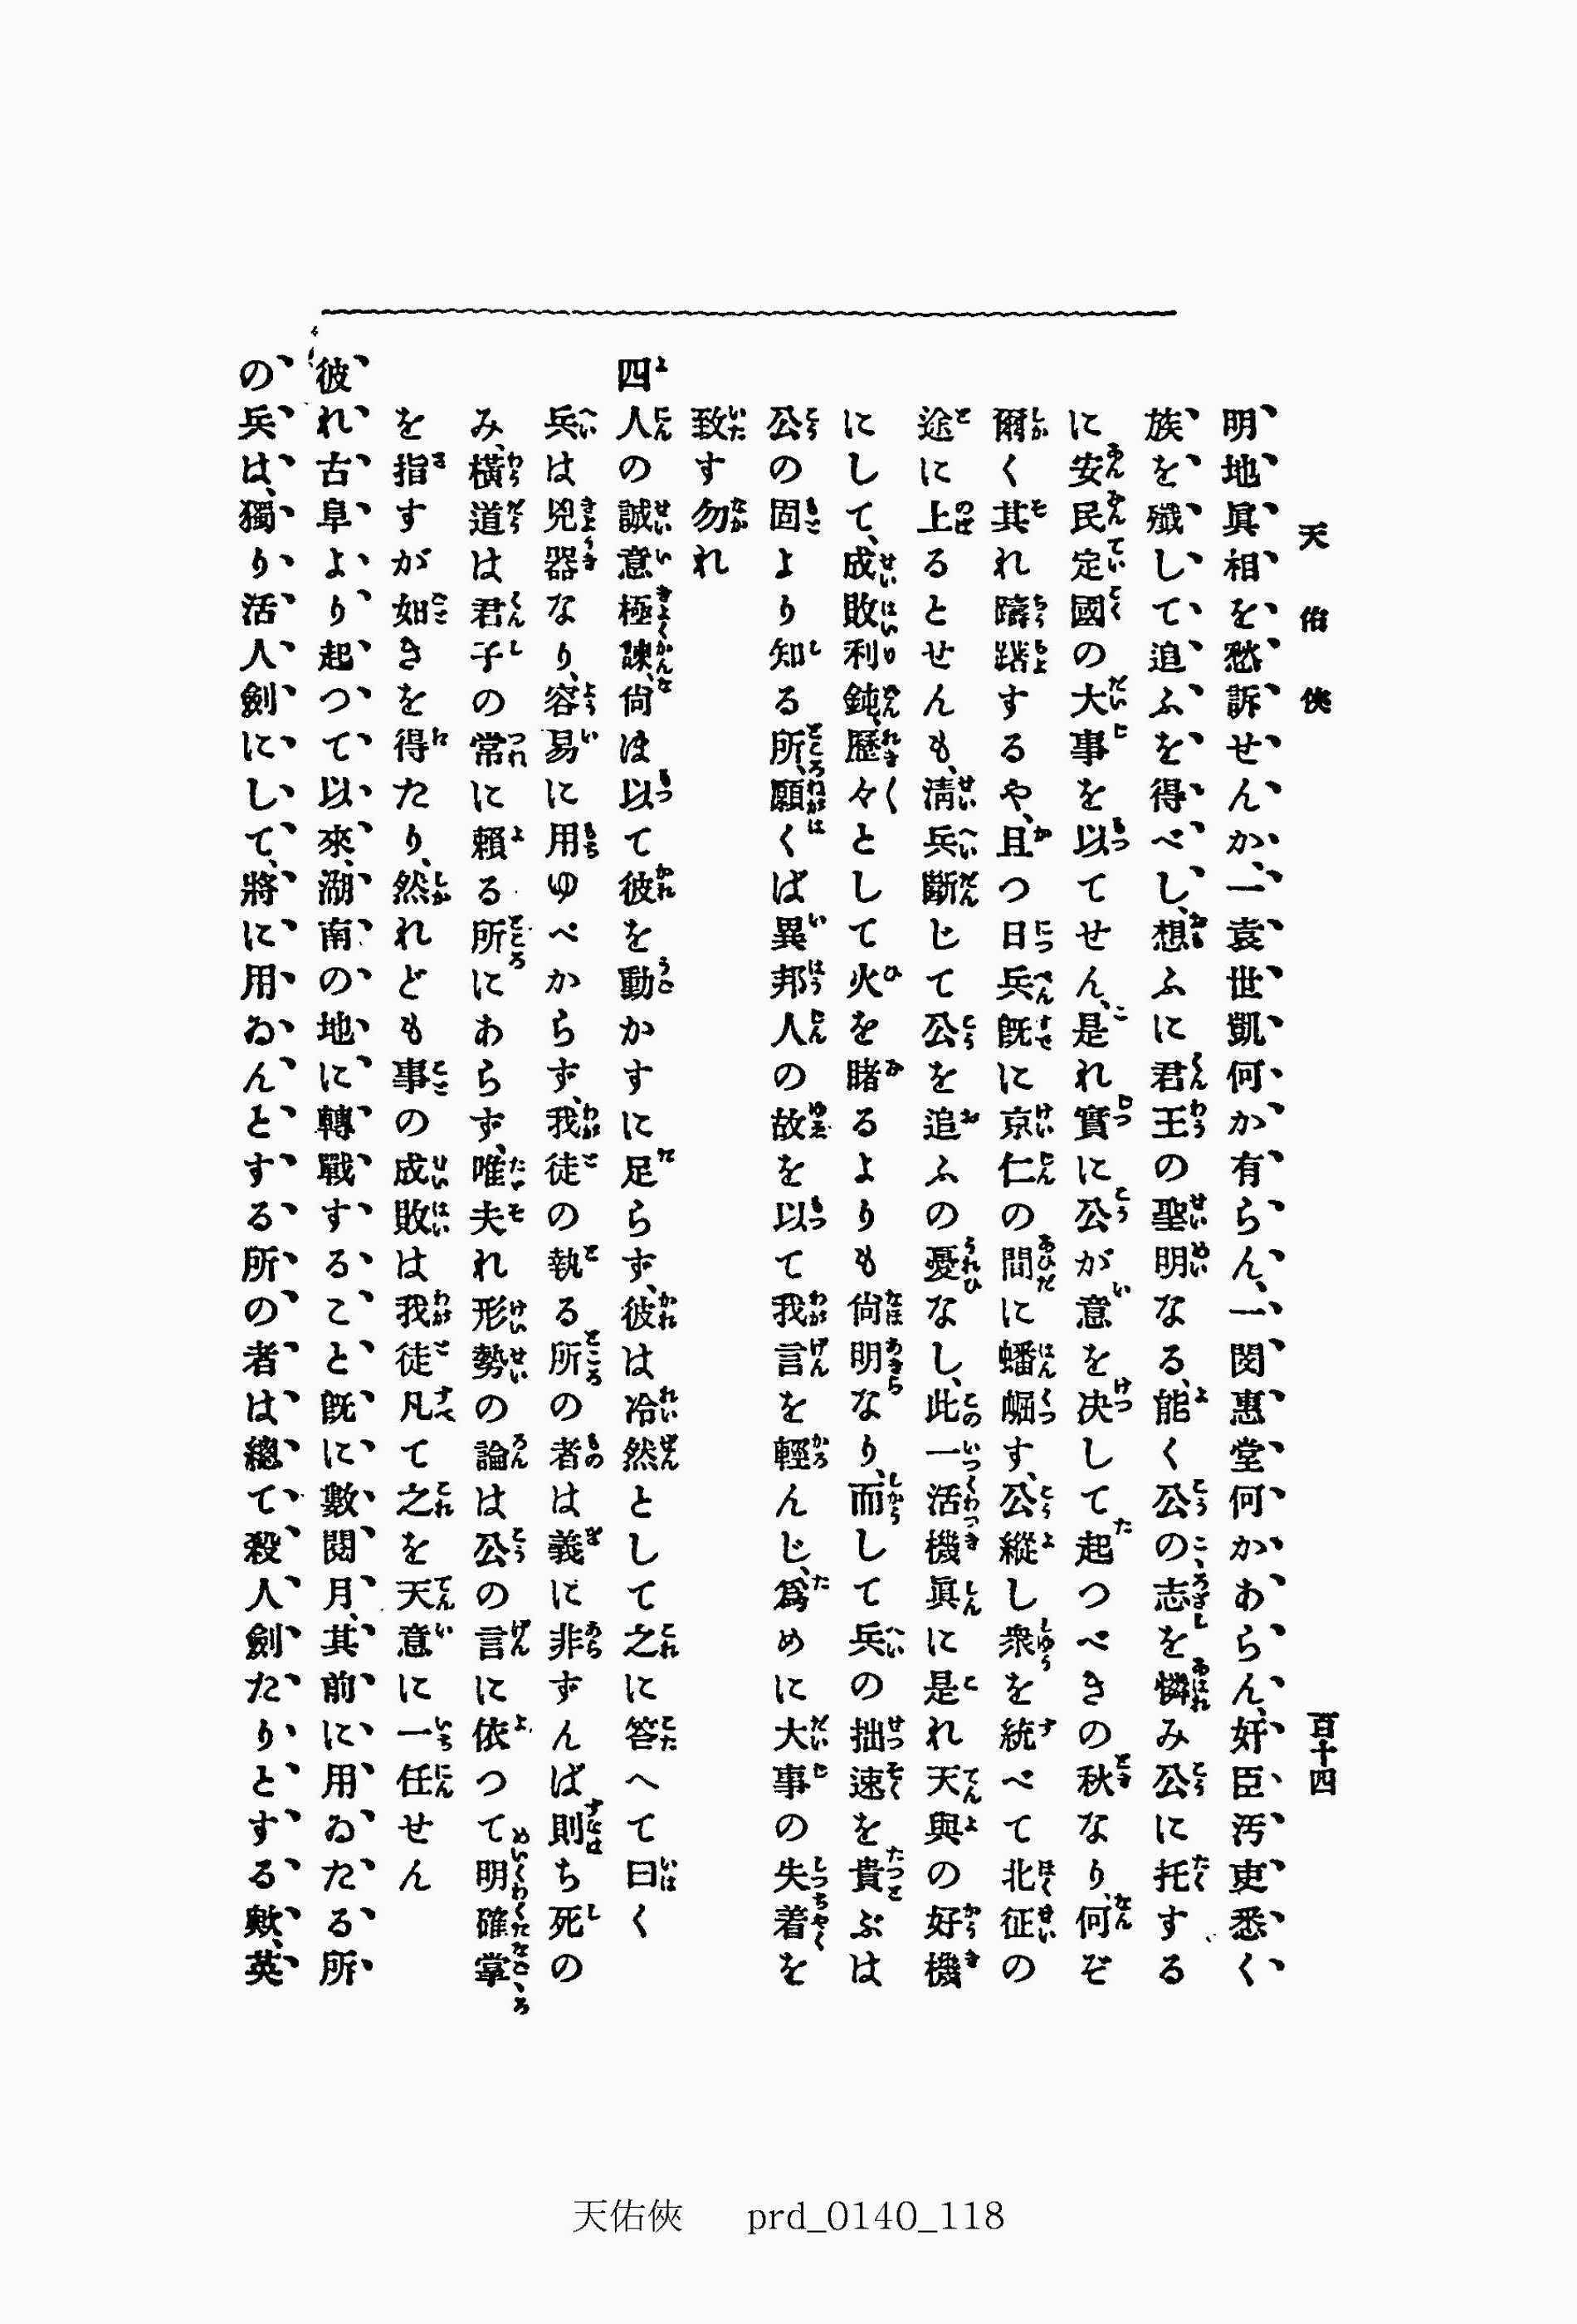 天佑俠
百十四
明地眞相を愁訴せんか、一袁世凱何か有らん、一閔惠堂何かあらん、奸臣汚吏悉く
族を殱して追ふを得べし、想ふに君王の聖明なる、能く公の志を憐み公に托する
に安民定國の大事を以てせん、是れ實に公が意を决して起つべきの秋なり、何ぞ
爾く其れ躊躇するや、且つ日兵既に京仁の間に蟠崛す、公縱し衆を統べて北征の
途に上るとせんも、淸兵斷じて公を追ふの憂なし、此一活機眞に是れ天與の好機
にして、成敗利鈍、歷々として火を睹るよりも尙明なり、而して兵の拙速を貴ぶは
公の固より知る所、願くば異邦人の故を以て我言を輕んじ、爲めに大事の失着を
致す勿れ
四人の誠意極諫、尙ほ以て彼を動かすに足らず、彼は冷然として之に答へて曰く
兵は兇器なり、容易に用ゆべからず、我徒の執る所の者は義に非ずんば則ち死の
み、橫道は君子の常に賴る所にあらず、唯夫れ形勢の論は公の言に依つて明確掌
を指すが如きを得たり、然れども事の成敗は我徒凡て之を天意に一任せん
彼れ古阜より起つて以來、湖南の地に轉戰すること既に數閱月、其前に用ゐたる所
の兵は、獨り活人劍にして、將に用ゐんとする所の者は、總て殺人劍たりとする歟、英
天佑俠 prd_0140_118